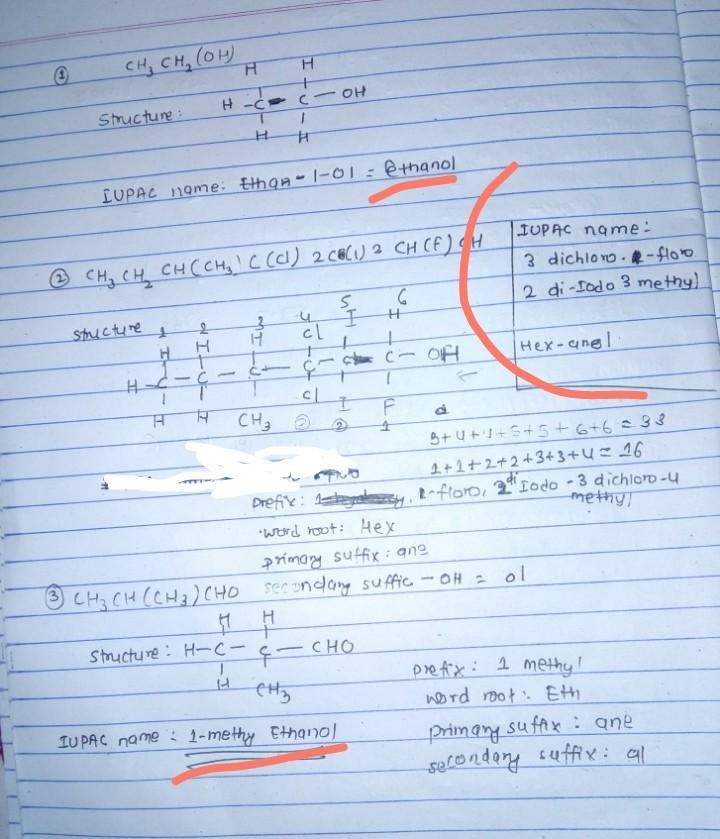 ① CH₃ CH₂ (OH)
H H
Structure: H - C - C - OH
H H
IUPAC name: Ethan - 1-ol = ethanol
② CH₃ CH₂ CH(CH₃) C(Cl) 2 C(I) 2 CH(F) OH
Structure 1 2 3 4 5 6
H H H Cl I H
H - C - C - C - C - C - C - OH
H H CH₃ Cl I F
② ② 1
IUPAC name:
3 dichloro. 1-floro
2 di-Iodo 3 methyl
Hex-anol
3+4+4+5+5+6+6 = 33
1+1+2+2+3+3+4 = 16
prefix: 1-floro, 2 di Iodo - 3 dichloro-4 methyl
word root: Hex
primary suffix: ane
secondary suffic - OH = ol
③ CH₃ CH(CH₃) CHO
H H
Structure: H-C- C - CHO
H CH₃
prefix: 1 methyl
word root: Eth
primary suffix: ane
secondary suffix: al
IUPAC name: 1-methy Ethanol